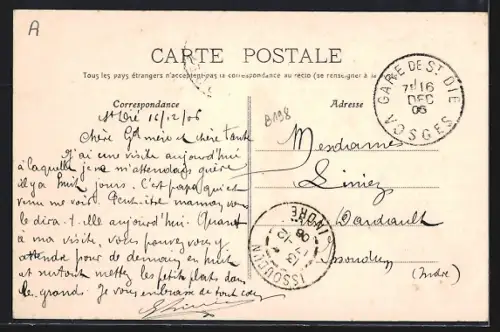 A
CARTE POSTALE
Tous les pays étrangers n'acceptent pas la correspondance au recto (se renseigner à la
Correspondance
Adresse
St Dié 16/12/06
Chère Gd mère et chère tante
J'ai eu une visite aujourd'hui
à laquelle je ne m'attendais guère
il y a huit jours. C'est papa qui est
venu me voir. Peut-être maman vous
le dira-t-elle aujourd'hui. Quant
à ma visite, vous pouvez vous y
attendre pour de demain en huit
et surtout mettez les petits plats dans
les grands. Je vous embrasse de tout cœur
B198
Mesdames
Liniez
Dardault
Issoudun
(Indre)
GARE DE ST DIE
7H 16
DEC
06
VOSGES
ISSOUDUN
INDRE
-12
06